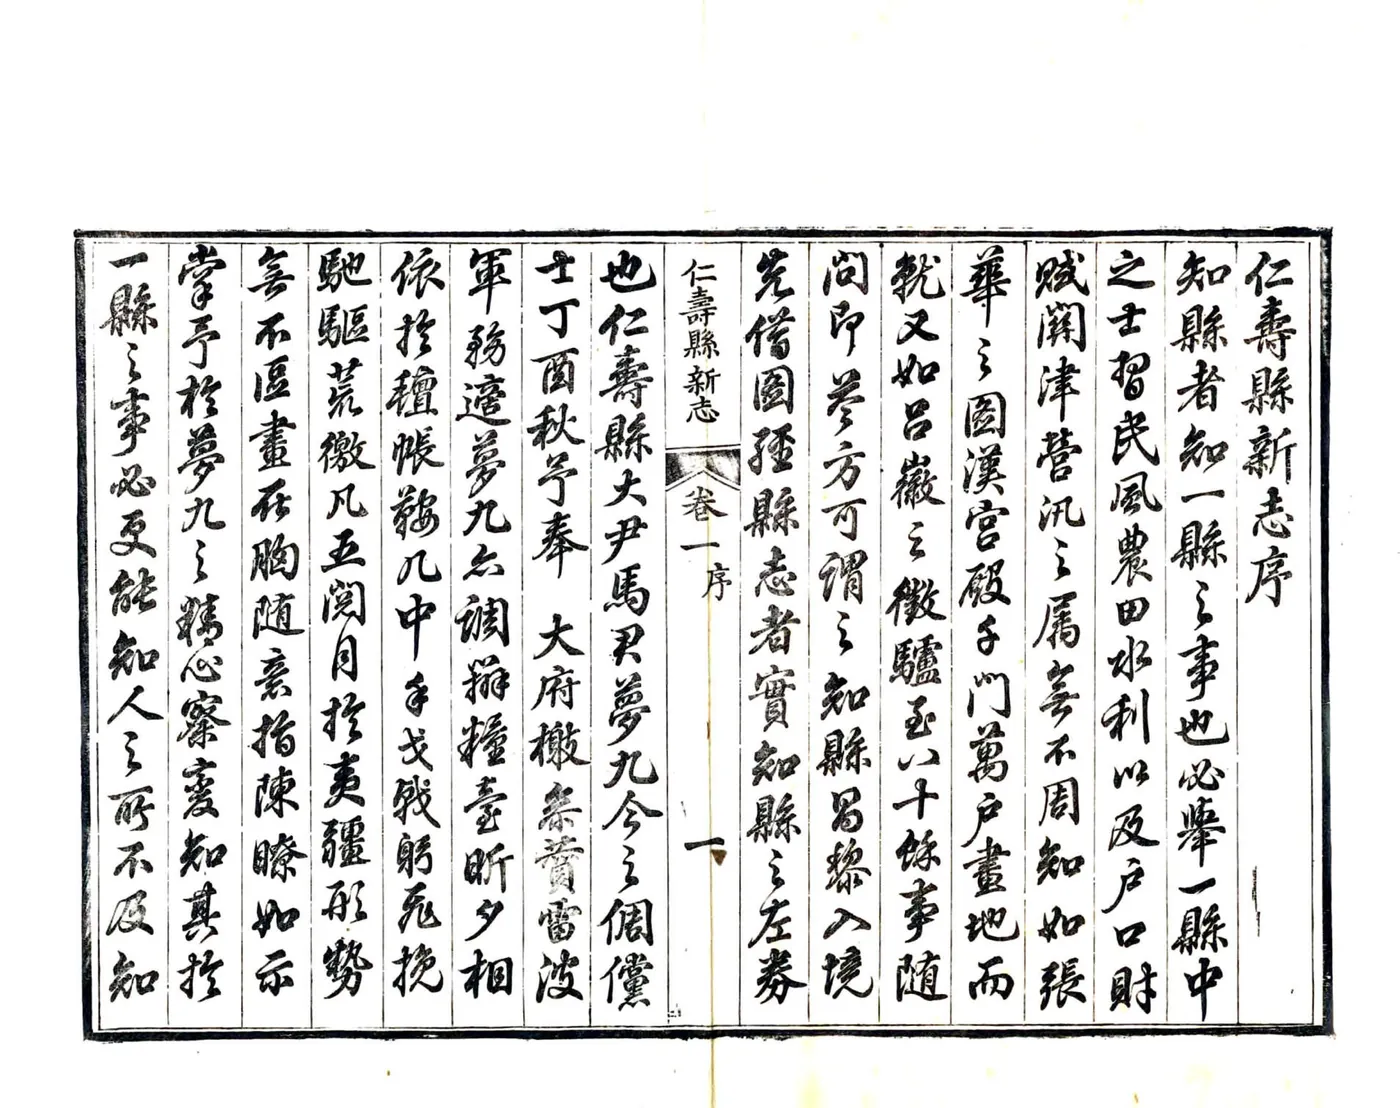 仁壽縣新志序
知縣者知一縣之事也必舉一縣中
之士習民風農田水利以及户口財
賦關津營汛之属無不周知如張
華之圖漢宫殿千門萬户畫地而
就又如呂徽之徵驢至八十餘事随
問即答方可謂之知縣昌黎入境
先借圖經縣志者實知縣之左劵
仁壽縣新志
卷一
序
一
也仁壽縣大尹馬君夢九今之倜儻
士丁酉秋予奉 大府檄叅賛雷波
軍務適夢九亦調辦糧臺昕夕相
依於氊帳鞍几中手戈戟躬飛挽
馳驅荒徼凡五閱月於夷疆形勢
無不區畫在胸随意指陳瞭如示
掌予於夢九之精心察变知其於
一縣之事必更能知人之所不及知